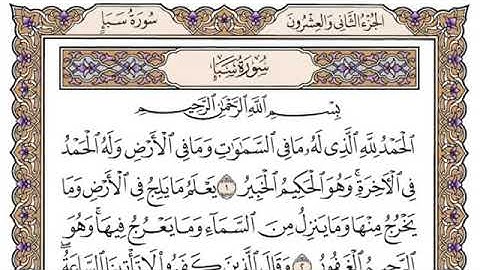 سُورَةُ سَبَإٍ
الجُزءُ الثَّانِي وَالعِشرُونَ
سُورَةُ سَبَإٍ
بِسْمِ ٱللَّهِ ٱلرَّحْمَٰنِ ٱلرَّحِيمِ
ٱلْحَمْدُ لِلَّهِ ٱلَّذِى لَهُۥ مَا فِى ٱلسَّمَٰوَٰتِ وَمَا فِى ٱلْأَرْضِ وَلَهُ ٱلْحَمْدُ
فِى ٱلْأَخِرَةِ ۚ وَهُوَ ٱلْحَكِيمُ ٱلْخَبِيرُ ١ يَعْلَمُ مَا يَلِجُ فِى ٱلْأَرْضِ وَمَا
يَخْرُجُ مِنْهَا وَمَا يَنزِلُ مِنَ ٱلسَّمَآءِ وَمَا يَعْرُجُ فِيهَا ۚ وَهُوَ
ٱلرَّحِيمُ ٱلْغَفُورُ ٢ وَقَالَ ٱلَّذِينَ كَفَرُوا۟ لَا تَأْتِينَا ٱلسَّاعَةُ ۖ